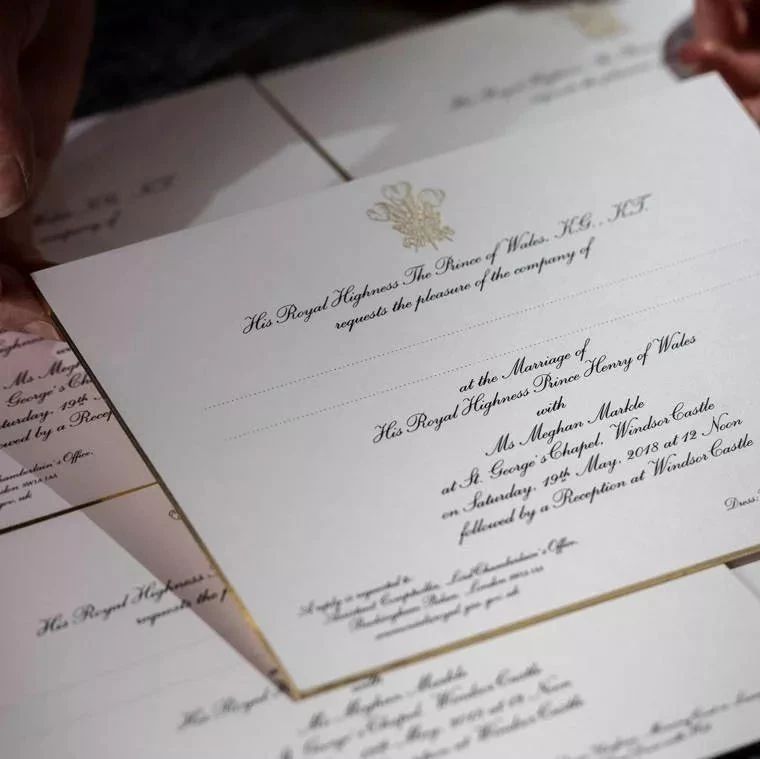 His Royal Highness The Prince of Wales, K.G., K.T.
requests the pleasure of the company of
at the Marriage of
His Royal Highness Prince Henry of Wales
with
Ms Meghan Markle
at St. George's Chapel, Windsor Castle
on Saturday, 19th May, 2018 at 12 Noon
followed by a Reception at Windsor Castle
Dress:
A reply is requested to:
Assistant Comptroller, Lord Chamberlain's Office,
Buckingham Palace, London SW1A 1AA
K.G., K.T.
company of
Ms Megh
George's Ch
Saturday, 19th
followed by a Recep
Chamberlain's Office,
SW1A 1AA
gov.uk
His Royal Highness
requests the p
His Royal High
with
Ms Meghan Markle
St. George's Chapel, Windsor Castle
19th May, 2018 at 12 Noon
Reception at Windsor Castle